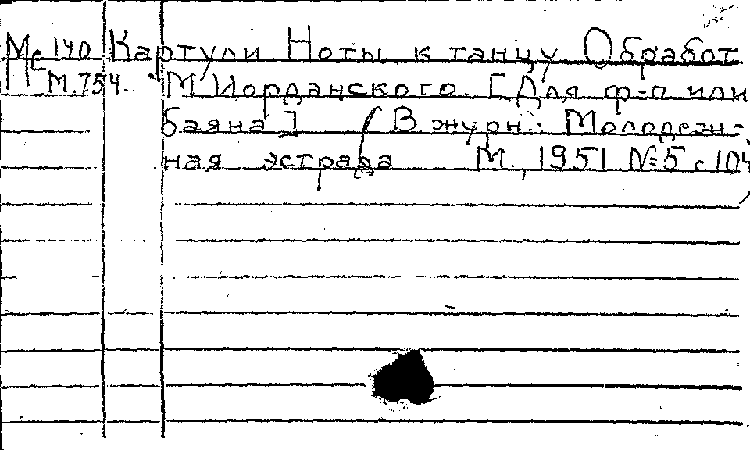 Мс 140 Картули Ноты к танцу Обработ
М.754. М Иорданского. [Для ф-п или
баяна] (В журн: Молодеж-
ная эстрада М, 1951 №5 с 104